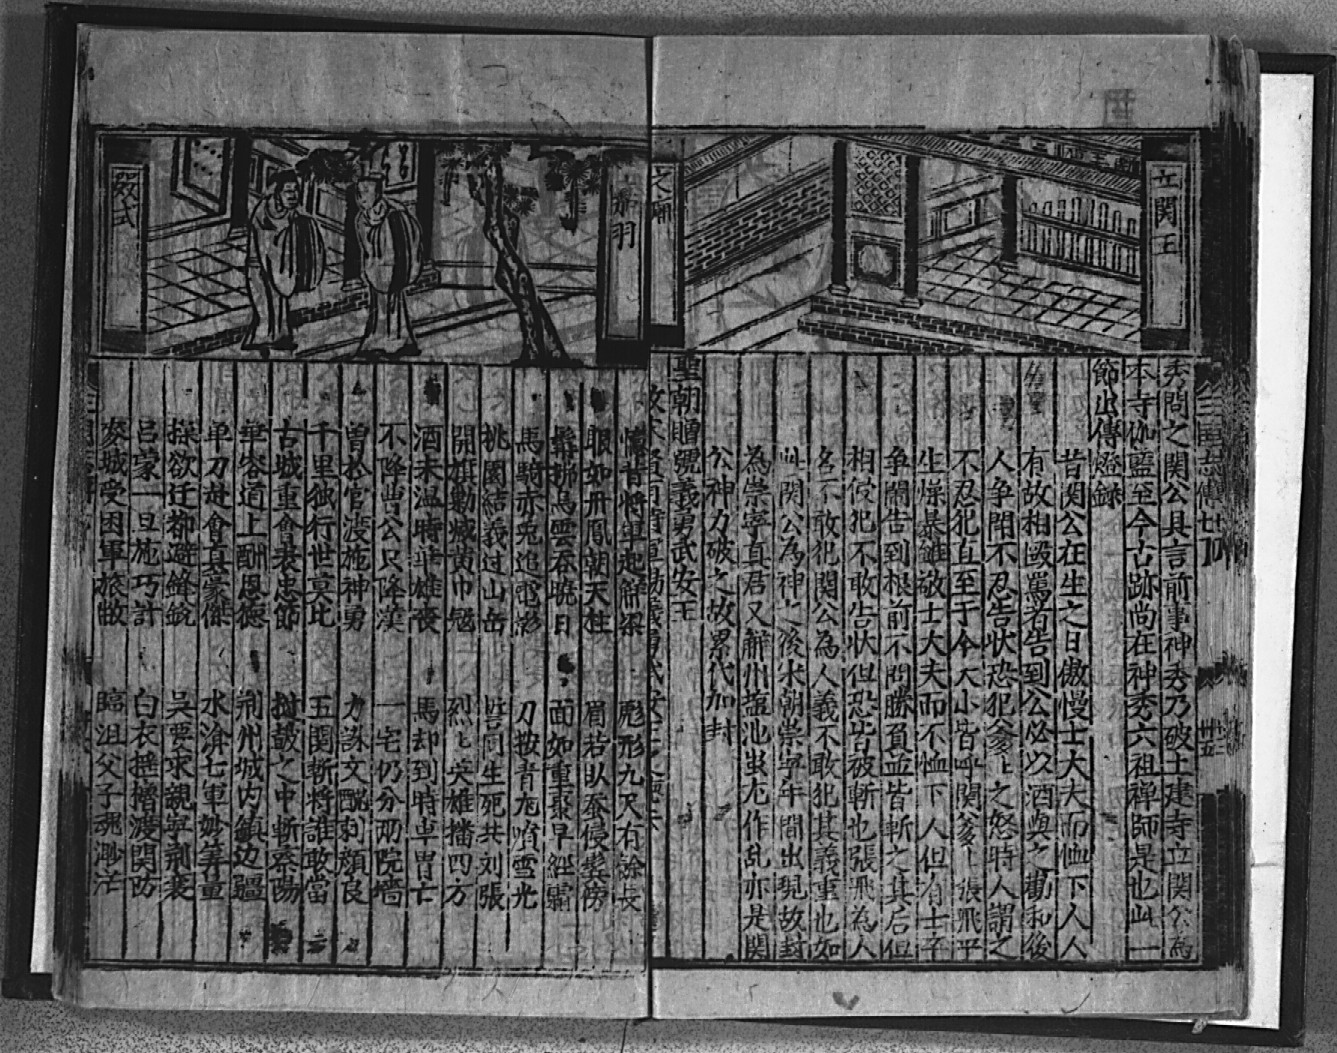 立関王
秀問之関公具言前事神秀乃破土建寺立関公為
本寺伽藍至今古跡尚在神秀六祖禅師是也此一
節出傳燈錄
昔関公在生之日傲慢士大夫而恤下人人
有故相毆罵者告到公必以酒與之勸和後
人争鬧不忍告状恐犯爹爹之怒時人謂之
不忍犯直至于今大小皆呼関爹爹張飛平
生燥暴雖敬士大夫而不恤下人但有士卒
争鬧告到根前不問勝負並皆斬之其后但
相侵犯不敢告状但恐皆被斬也張飛為人
名不敢犯関公為人義不敢犯其義重也如
此関公為神之後宋朝崇寧年間出現故封
為崇寧真君又解州塩池蚩尤作乱亦是関
公神力破之故累代加封
聖朝贈號義勇武安王
羽
憶昔將軍起解梁 彪形九尺有餘長
眼如丹鳳朝天柱 眉若臥蚕侵鬓傍
烏雲吞曉日 面如重棗早經霜
馬騎赤兎追電影 刀按青龙噴雪光
桃園結義过山岳 誓同生死共刘張
開旗動滅黄巾冦 烈烈英雄播四方
酒未温時華雄丧 馬却到時車冑亡
不降曹公只降漢 一宅仍分两院墻
曽於官渡施神勇 力誅文醜刺顔良
千里独行世莫比 五関斬将誰敢當
古城重會表忠節 擂鼓之中斬蔡陽
華容道上酬恩德 荊州城内鎮边疆
单刀赴會真豪傑 水渰七軍妙筭重
操欲迁都避鋒銳 吳要求親寧荆襄
呂蒙一旦施巧計 白衣摇擼渡関防
麥城受困軍旅敝 臨沮父子魂渺茫